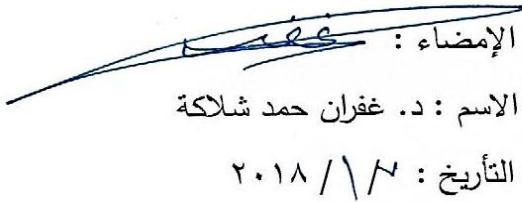 الإمضاء :
الاسم : د. غفران حمد شلاكة
التأريخ : / ١ / ٢٠١٨